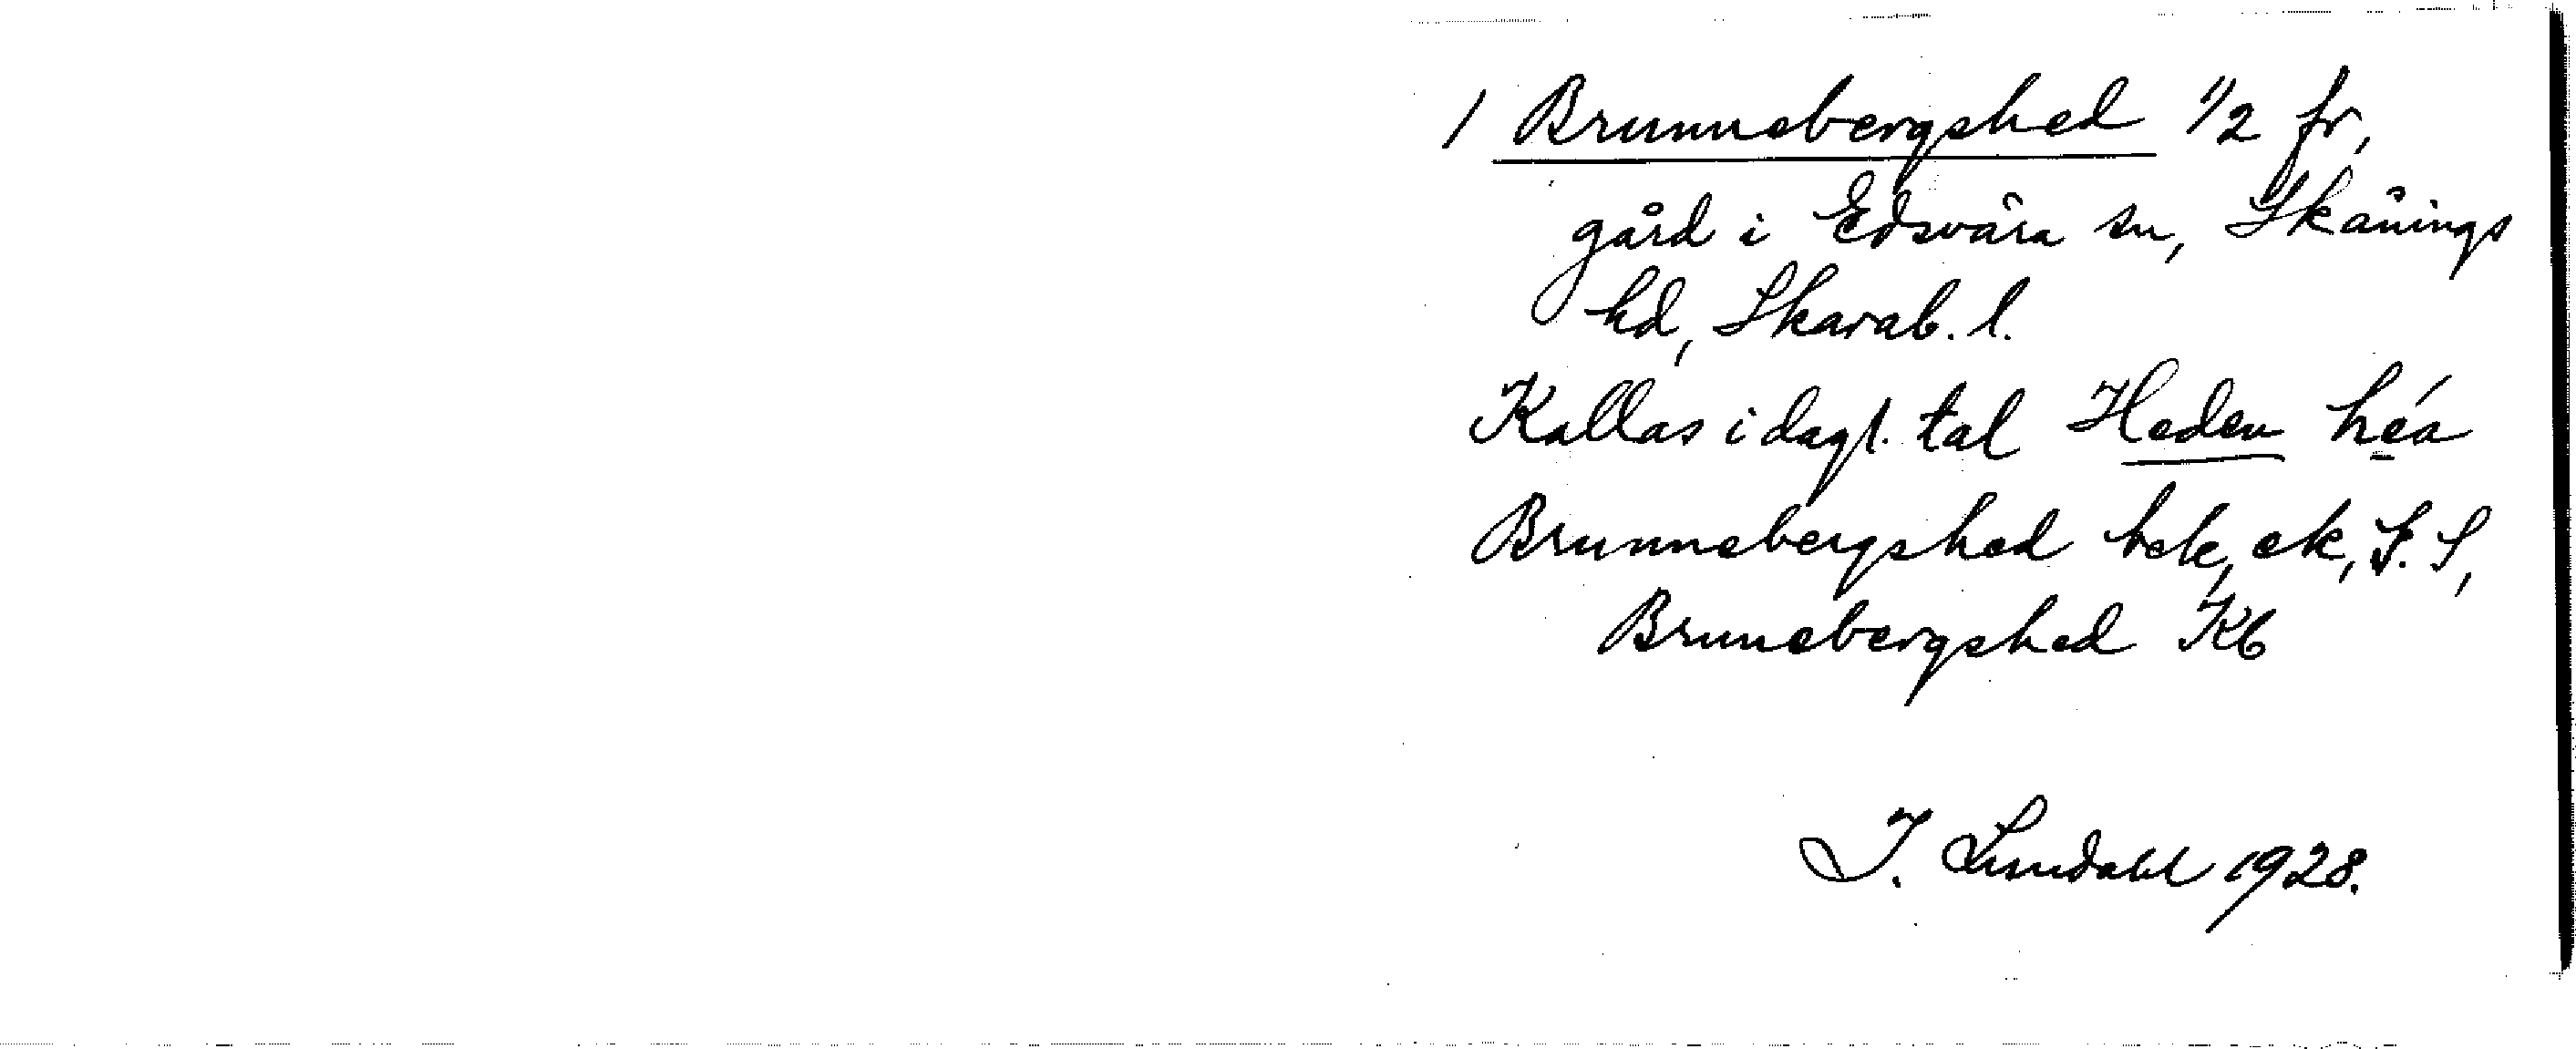 1 Brunnebergshed 1/2 fr,
gård i Edsvära sn, Skånings
hd, Skarab. l.
Kallas i dagl. tal Heden héa
Brunnebergshed bek, ek, J. S,
Brunebergshed Kb
J. Lundahl 1928.